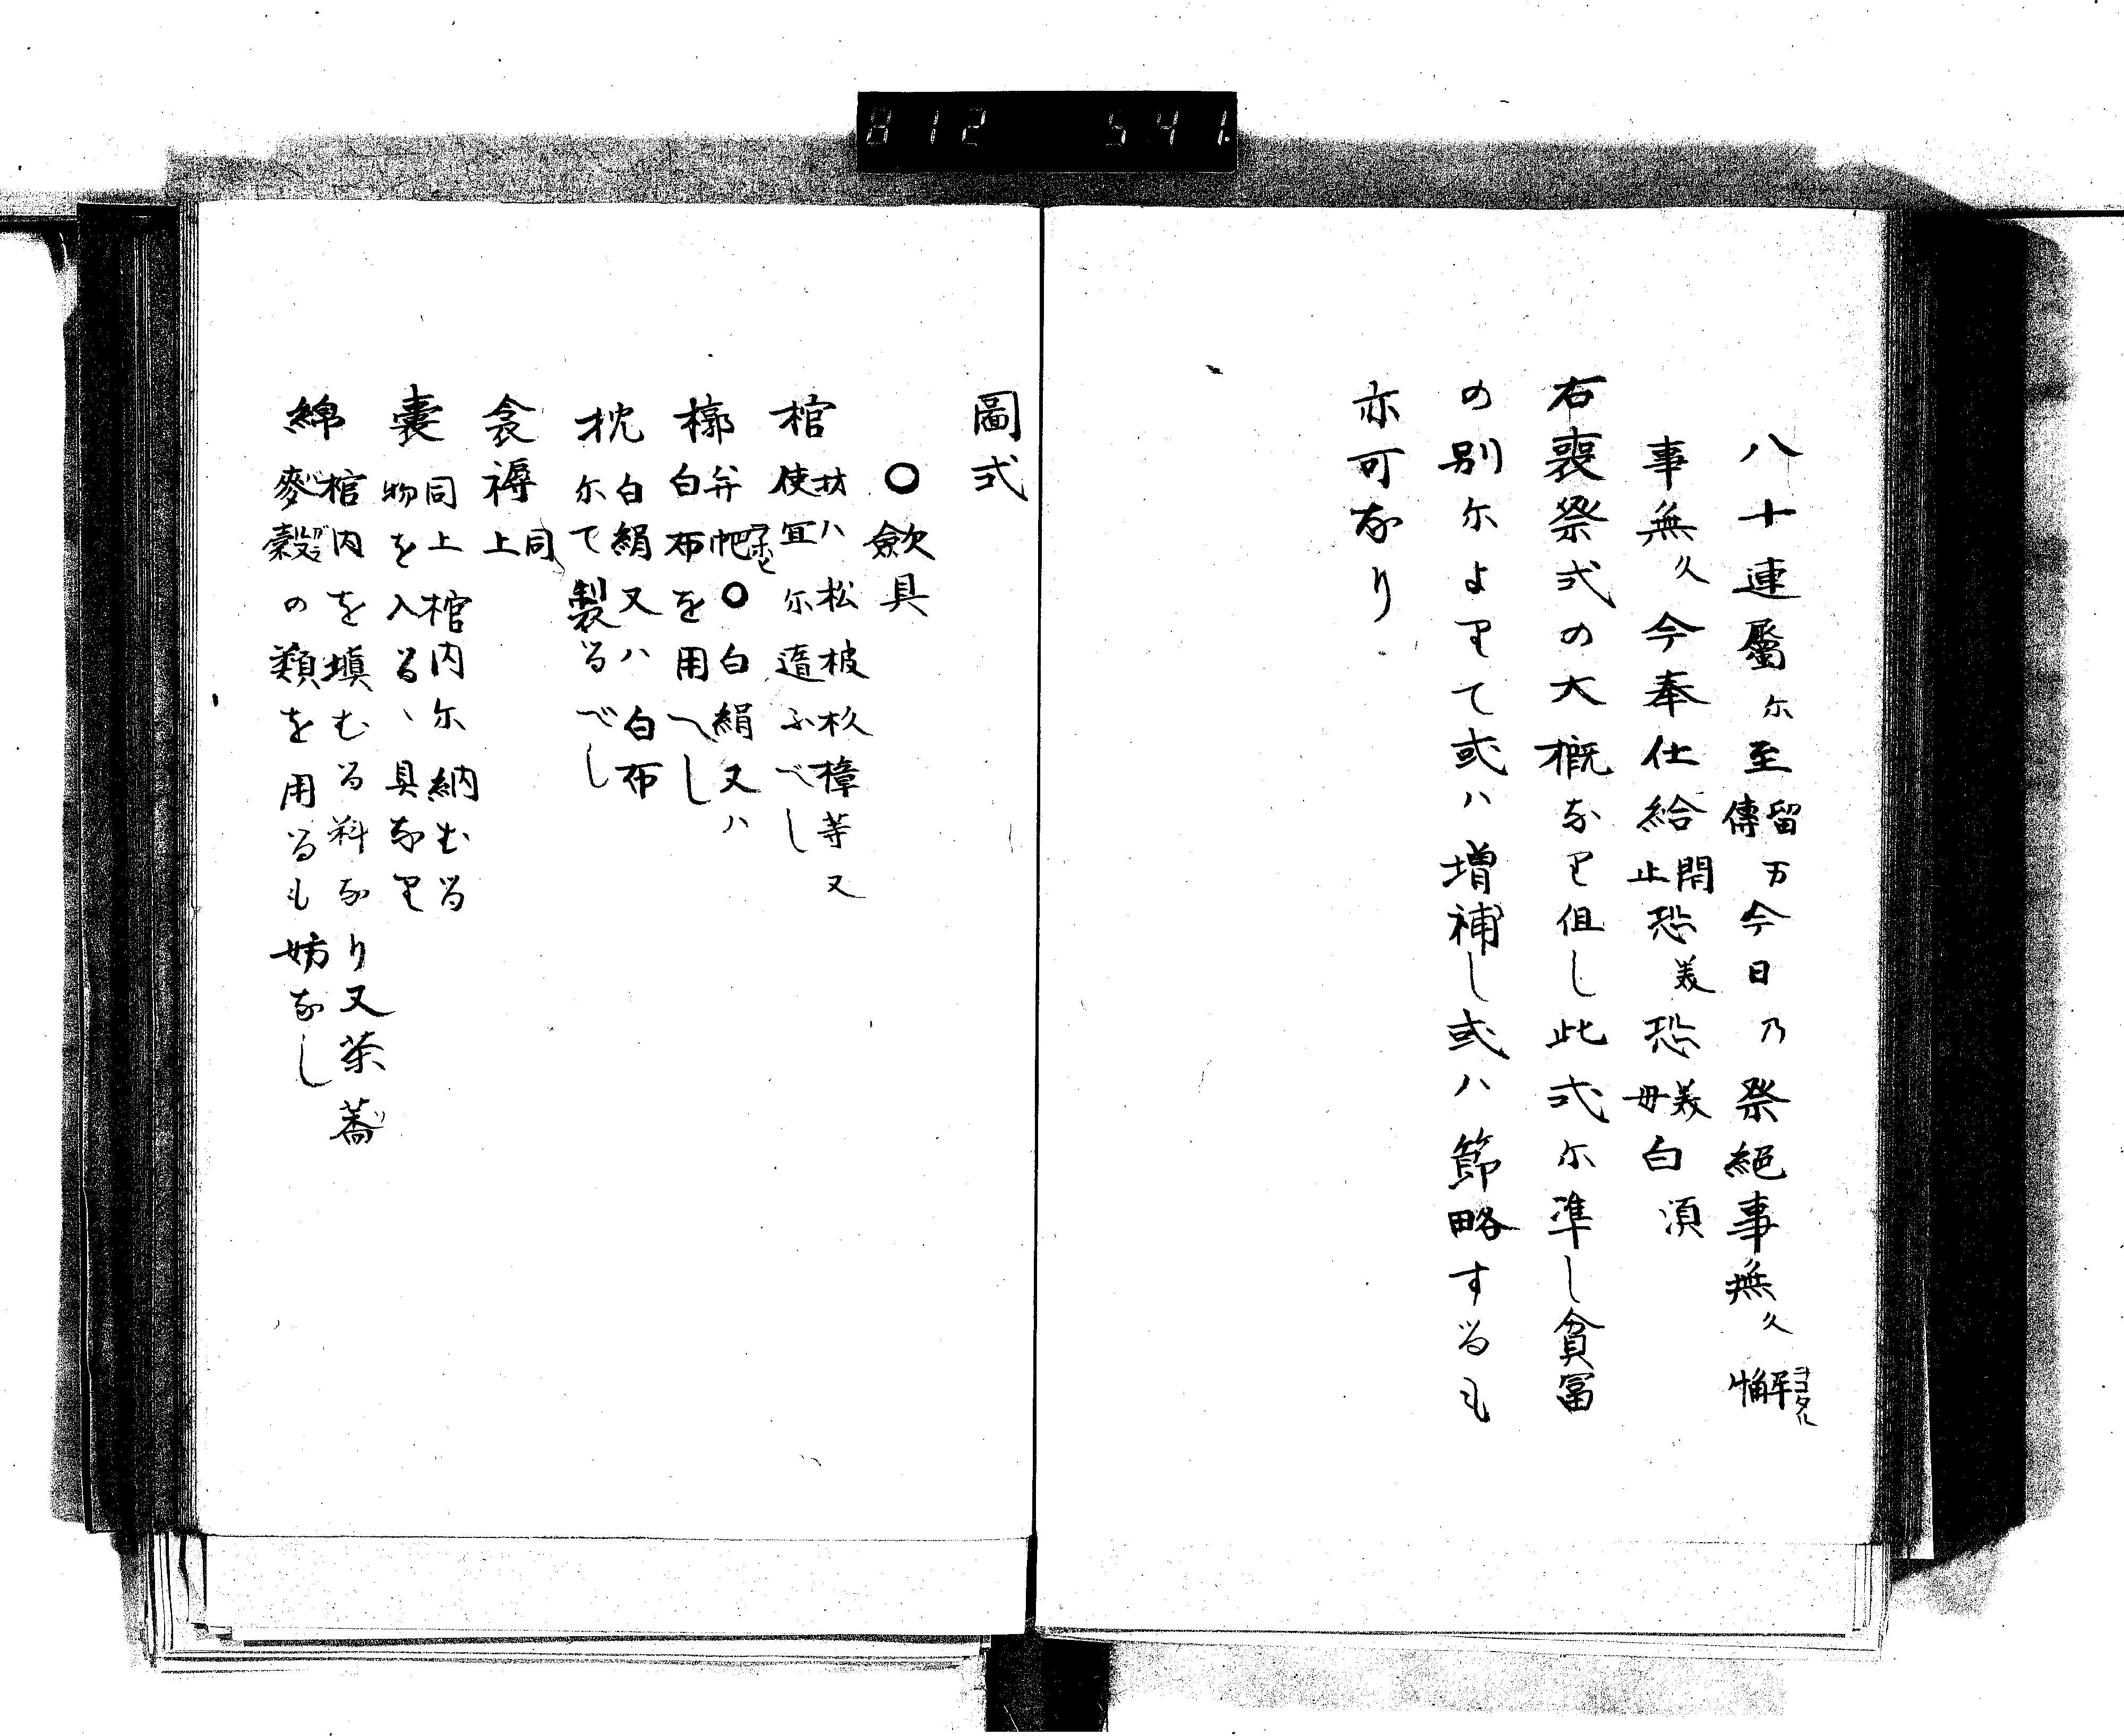 812 541.
八十連屬尓至留傳万今日乃祭絕事無久懈ヲコタル
事無久今奉仕給閇止恐美恐美毋白湏
右喪祭式の大概なり但し此式尓準し貧冨
の別尓よりて或ハ増補し或ハ節略するも
亦可なり
圖式
〇斂具
棺 材ハ松柀杉樟等又
便宜尓隨ふべし
槨 并帊〇白絹又ハ
白布を用へし
枕 白絹又ハ白布
尓て製るべし
衾褥 同上
嚢 同上棺内尓納むる
物を入るゝ具なり
綿 棺内を塡むる料なり又茶蕎
麥殼の類を用るも妨なし